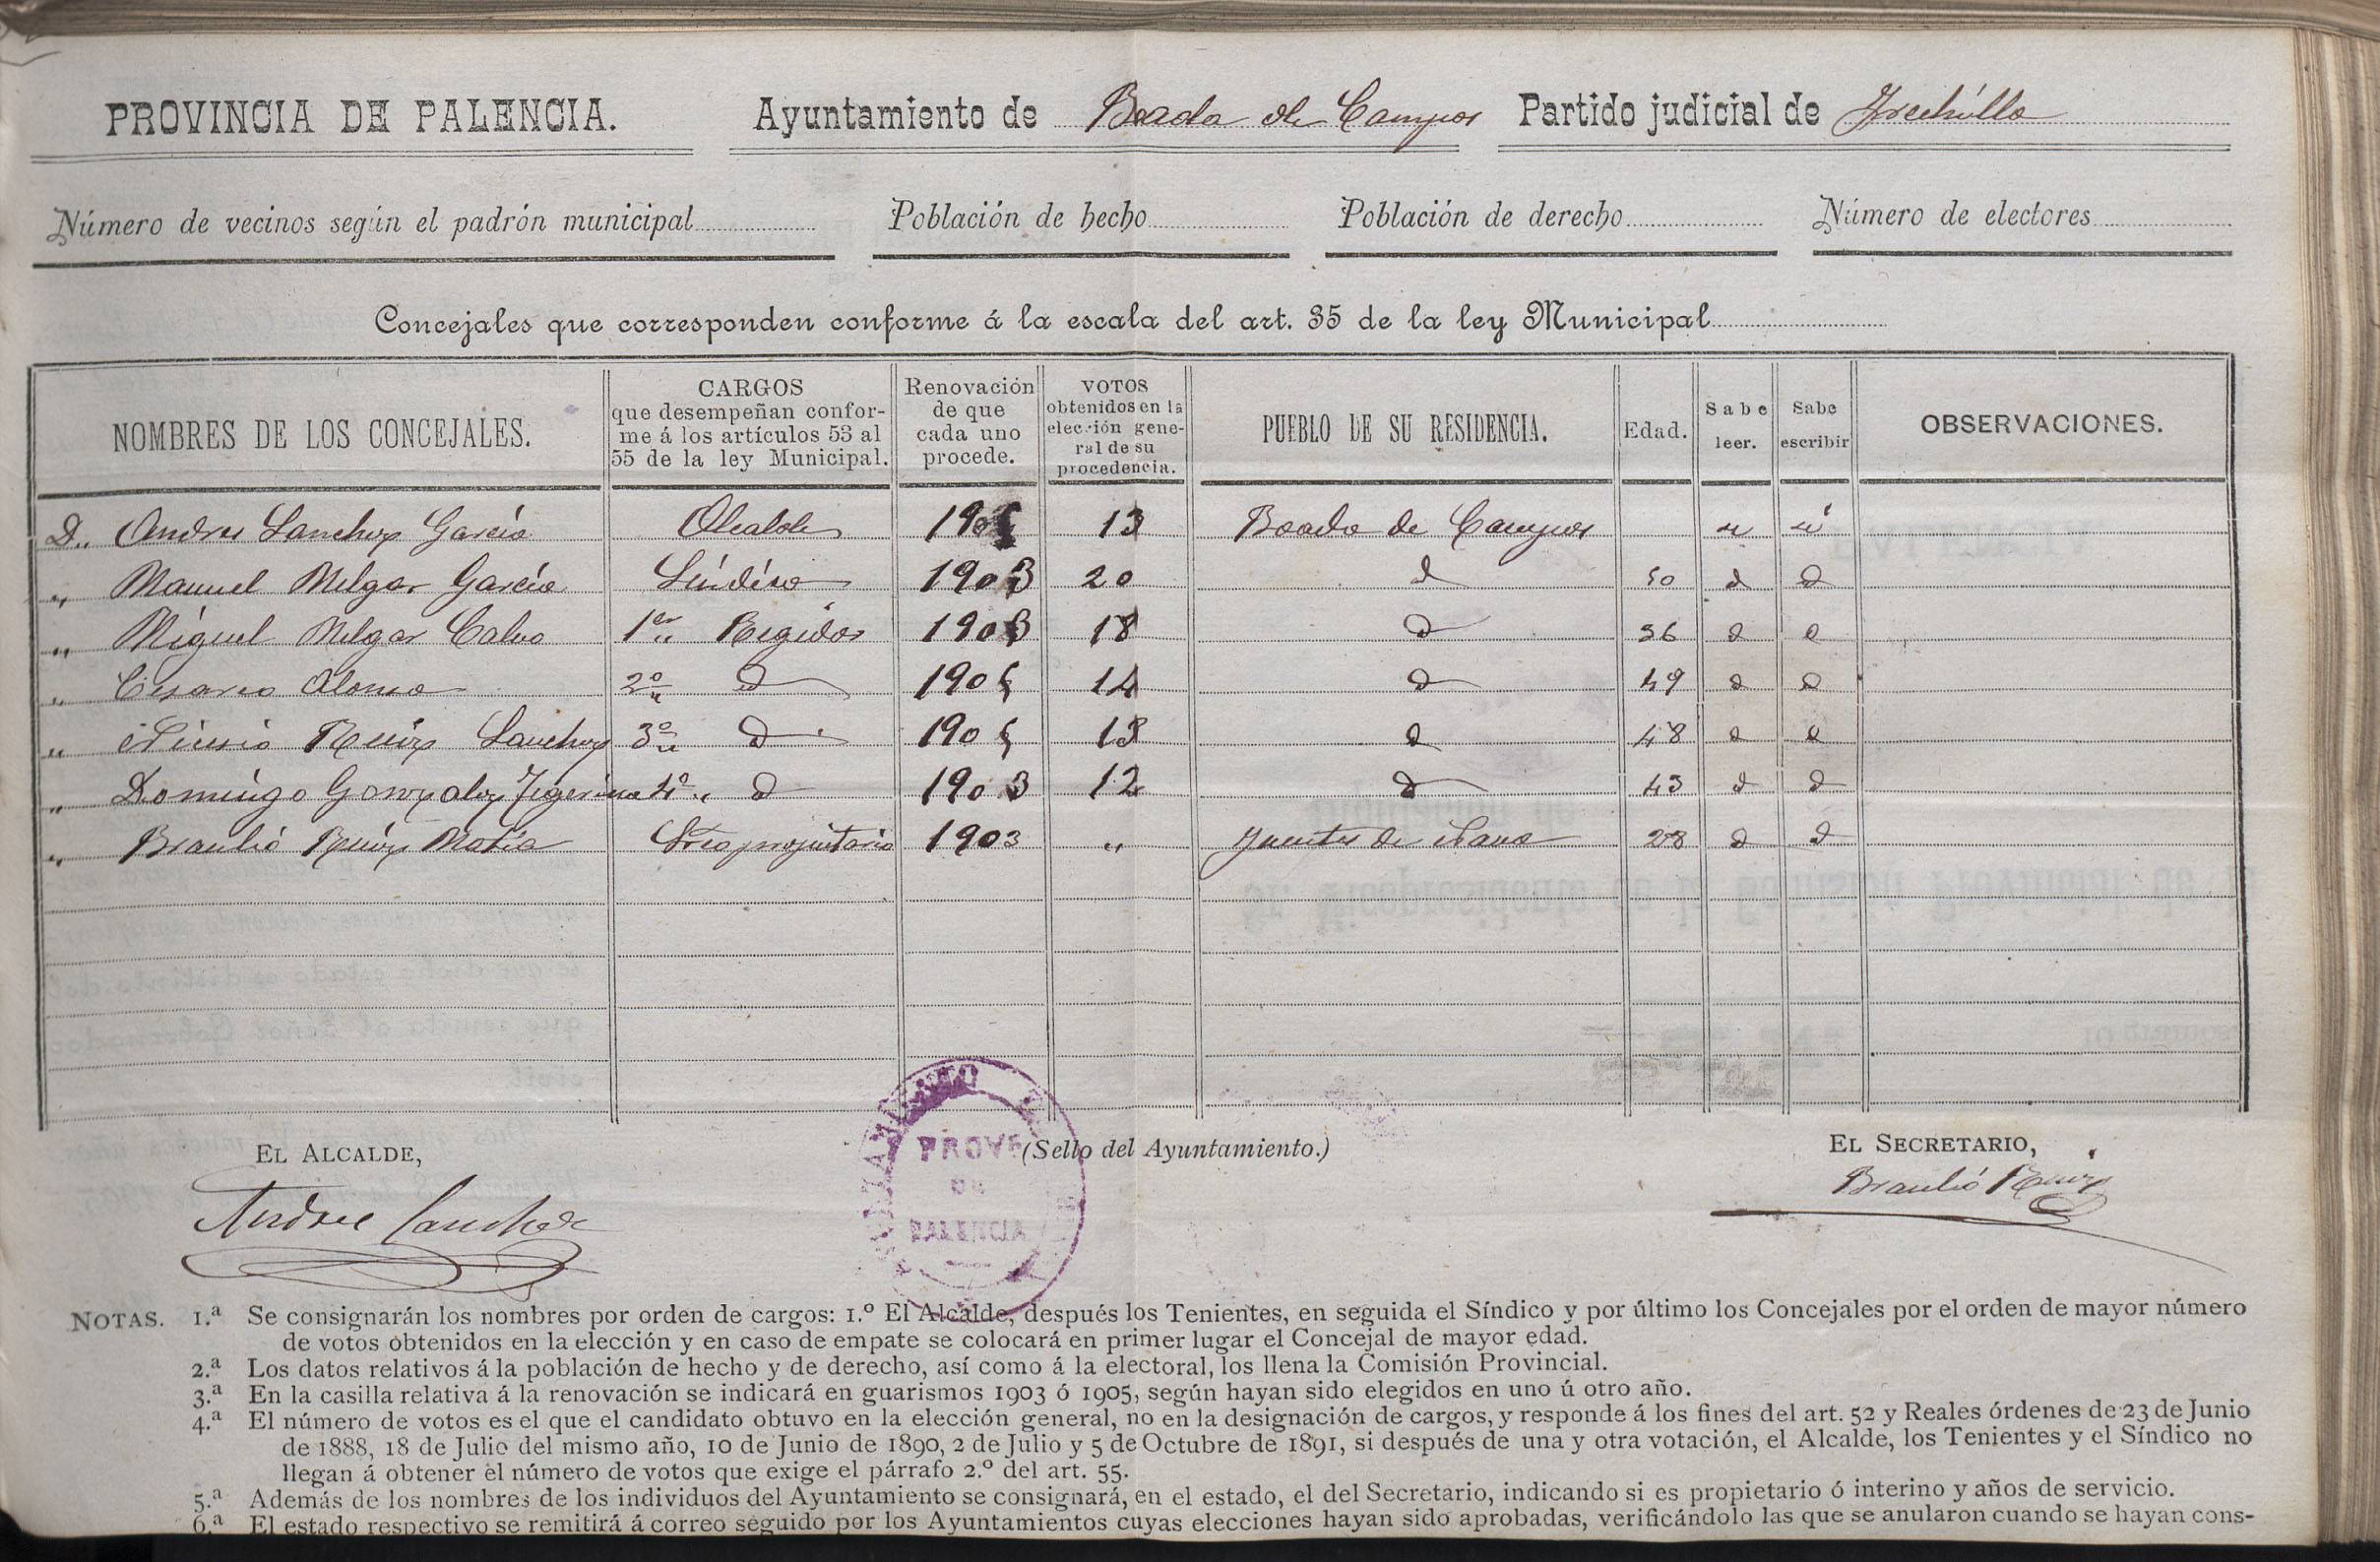 PROVINCIA DE PALENCIA. Ayuntamiento de Boada de Campos Partido judicial de Frechilla
Número de vecinos según el padrón municipal Población de hecho Población de derecho Número de electores
Concejales que corresponden conforme á la escala del art. 35 de la ley Municipal
NOMBRES DE LOS CONCEJALES. CARGOS que desempeñan conforme á los artículos 53 al 55 de la ley Municipal. Renovación de que cada uno procede. VOTOS obtenidos en la elección general de su procedencia. PUEBLO DE SU RESIDENCIA. Edad. Sabe leer. Sabe escribir OBSERVACIONES.
D. Andres Sanchez García Alcalde 1905 13 Boada de Campos si si
" Manuel Melgar García Síndico 1903 20 d 50 d d
" Miguel Melgar Calvo 1er Regidor 1903 18 d 36 d d
" Cesareo Alonso 2º d 1905 14 d 49 d d
" Ruiz Sanchez 3º d 1905 13 d 48 d d
" Domingo Gonzalez Tegerina 4º d 1903 12 d 43 d d
" Braulio Ruiz Matía Srio propietario 1903 " Fuentes de Nava 28 d d
EL ALCALDE, (Sello del Ayuntamiento.) EL SECRETARIO,
Andres Sanchez Braulio Ruiz
PROVª
DE
PALENCIA
NOTAS. 1.ª Se consignarán los nombres por orden de cargos: 1.º El Alcalde, después los Tenientes, en seguida el Síndico y por último los Concejales por el orden de mayor número
de votos obtenidos en la elección y en caso de empate se colocará en primer lugar el Concejal de mayor edad.
2.ª Los datos relativos á la población de hecho y de derecho, así como á la electoral, los llena la Comisión Provincial.
3.ª En la casilla relativa á la renovación se indicará en guarismos 1903 ó 1905, según hayan sido elegidos en uno ú otro año.
4.ª El número de votos es el que el candidato obtuvo en la elección general, no en la designación de cargos, y responde á los fines del art. 52 y Reales órdenes de 23 de Junio
de 1888, 18 de Julio del mismo año, 10 de Junio de 1890, 2 de Julio y 5 de Octubre de 1891, si después de una y otra votación, el Alcalde, los Tenientes y el Síndico no
llegan á obtener el número de votos que exige el párrafo 2.º del art. 55.
5.ª Además de los nombres de los individuos del Ayuntamiento se consignará, en el estado, el del Secretario, indicando si es propietario ó interino y años de servicio.
6.ª El estado respectivo se remitirá á correo seguido por los Ayuntamientos cuyas elecciones hayan sido aprobadas, verificándolo las que se anularon cuando se hayan cons-